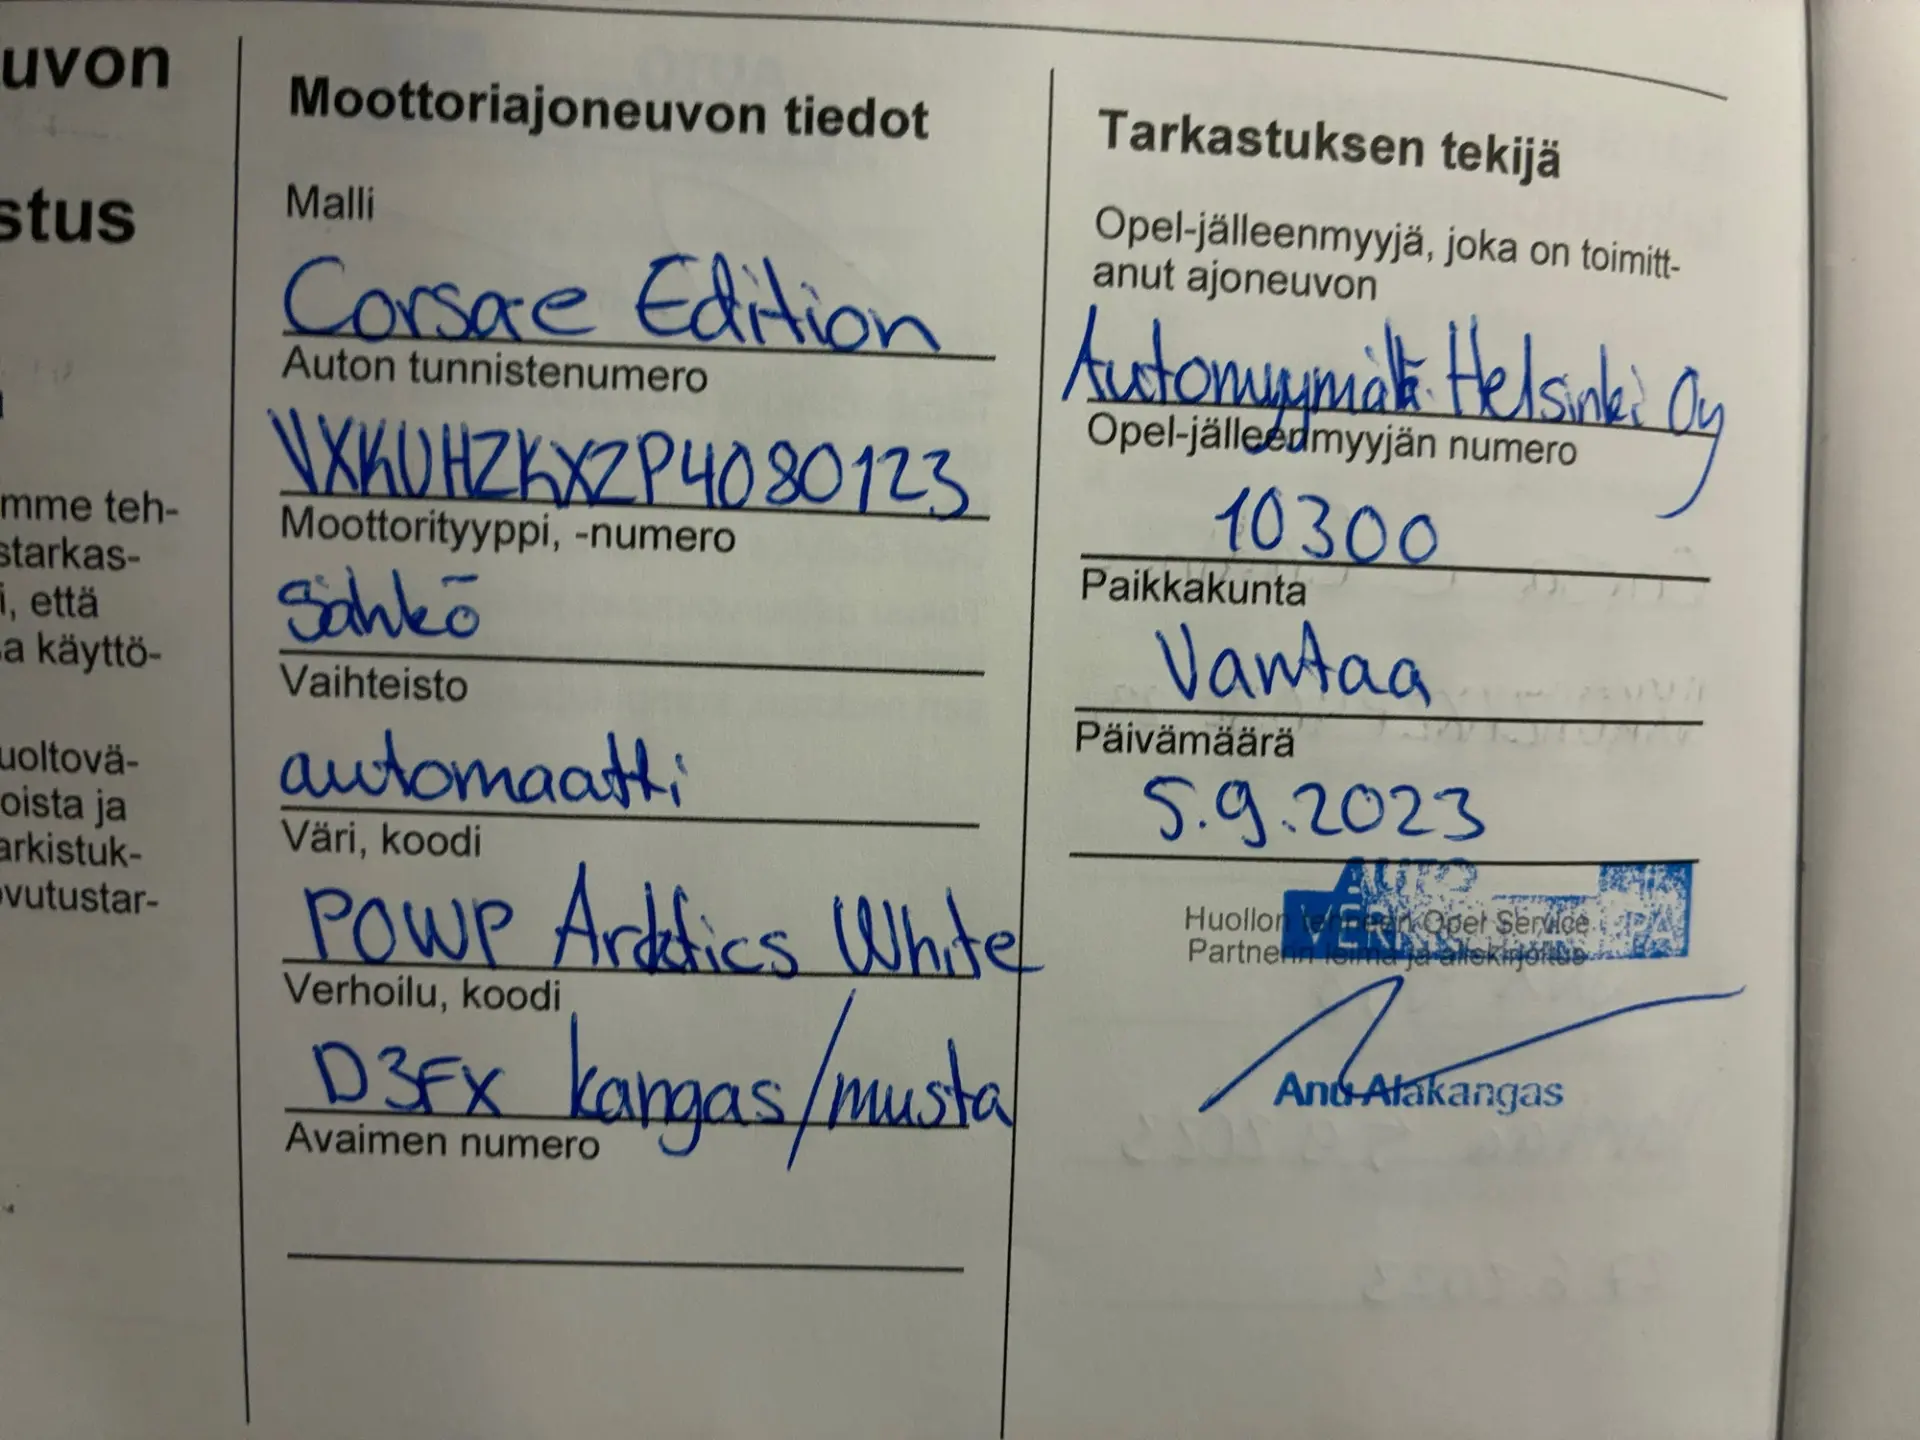 uvon
stus
mme teh-
starkas-
i, että
a käyttö-
uoltovä-
oista ja
arkistuk-
ovutustar-
Moottoriajoneuvon tiedot
Malli
Corsa-e Edition
Auton tunnistenumero
VXKUHZKXZP4080123
Moottorityyppi, -numero
Sähkö
Vaihteisto
automaatti
Väri, koodi
POWP Arktics White
Verhoilu, koodi
D3FX kangas/musta
Avaimen numero
Tarkastuksen tekijä
Opel-jälleenmyyjä, joka on toimitt-
anut ajoneuvon
Automyymälä Helsinki Oy
Opel-jälleenmyyjän numero
10300
Paikkakunta
Vantaa
Päivämäärä
5.9.2023
AUTO
Huollon tehneen Opel Service
Partnerin leima ja allekirjoitus
Anu Alakangas